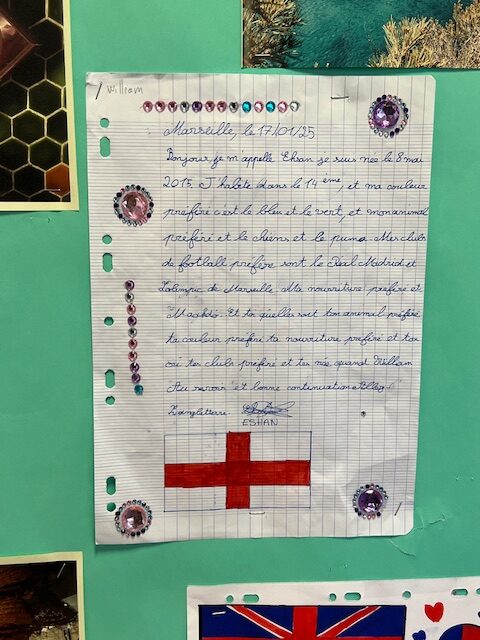 William
Marseille, le 17/01/25
Bonjour je m'appelle Ehsan je suis née le 8 mai
2015. J'habite dans le 14ème, et ma couleur
préféré c'est le bleu et le vert, et mon animal
préféré et le chiens et le puma. Mes clubs
de football préfére sont le Réal Madrid et
l'olimpic de Marseille. Ma nourriture préféré et
Macdo. Et toi quelles sont ton animal préféré
ta couleur préféré ta nourriture préféré et toi
tes clubs préféré et tes née quand William
Au revoir et bonne continuation
L'angletterre
ESHAN